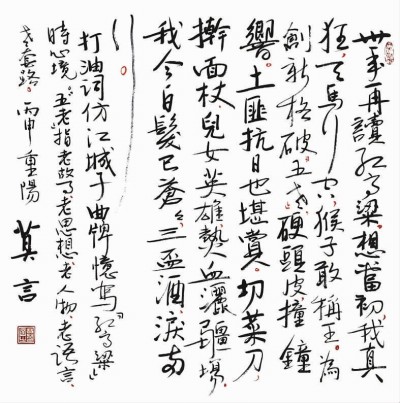 卅年再讀红高粱想當初我真
狂天馬行空猴子敢稱王為
創新格破五老硬頭皮撞鐘
響土匪抗日也堪賞切菜刀
擀面杖兒女英雄熱血灑疆場
我今白髮已蒼々三盃酒淚兩
行
打油词仿江城子曲牌憶寫「红高粱」
時心境。五老指老故事老思想老人物老語言
老套路。丙申重陽
莫言